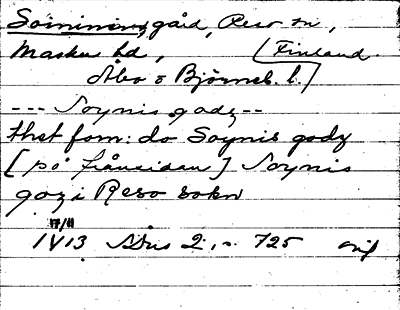 Soininen, gård, Reso sn,
Masku hd, [Finland.
Åbo o Björneb. l.]
--- Soynis godz --
thet forn: do Soynis godz
[på frånsidan] Soynis
goz i Reso sokn
17/11
1413 Nris 2, n. 725 orig